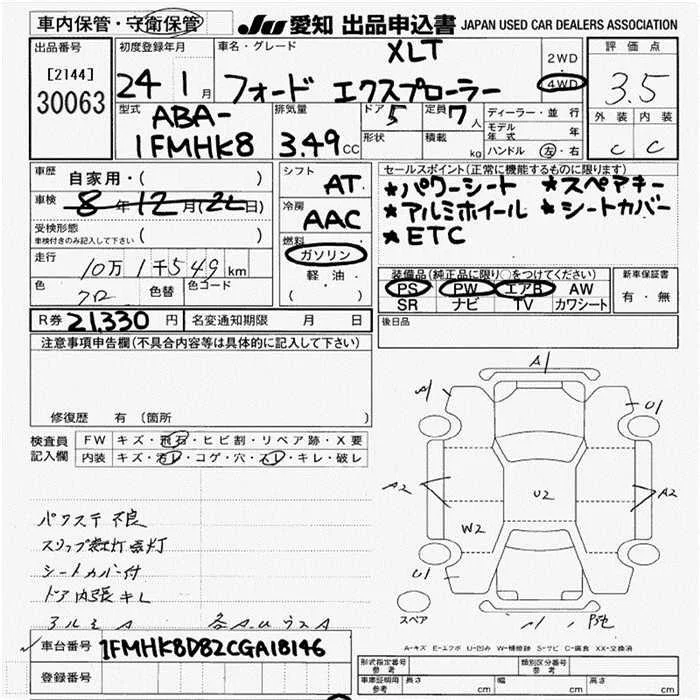 車内保管・守衛保管
JU 愛知 出品申込書 JAPAN USED CAR DEALERS ASSOCIATION
出品番号
[2144]
30063
初度登録年月
24 1月
車名・グレード
XLT
フォード エクスプローラー
2WD
・
4WD
評価点
3.5
外装 内装
C C
型式
ABA-
1FMHK8
排気量
3.49cc
ドア 5
形状
定員 7人
積載 kg
ディーラー・並行
モデル年式 年
ハンドル 左・右
車歴 自家用・( )
車検 8年12月(22日)
受検形態
車検付きのみ記入して下さい ( )
走行
10万1千549km
色 クロ 色替 色コード
シフト
AT
冷房
AAC
燃料
ガソリン
軽油・
( )
セールスポイント(正常に機能するものに限ります)
*パワーシート *スペアキー
*アルミホイール *シートカバー
*ETC
装備品(純正品に限り○をつけてください)
PS PW エアB AW
SR ナビ TV カワシート
新車保証書
有・無
R券 21,330円 名変通知期限 月 日
後日品
注意事項申告欄(不具合内容等は具体的に記入して下さい)
修復歴 有(箇所 )
検査員
記入欄
FW キズ・飛石・ヒビ割・リペア跡・X要
内装 キズ・汚レ・コゲ・穴・スレ・キレ・破レ
パワステ不良
スリップ警灯点灯
シートカバー付
ドア内張キレ
アルミA 各A.U ウスA
A1
A1
U1
A2
U2
A2
W2
U1
スペア
A-キズ E-エクボ U-凹み W-補修跡 S-サビ C-腐食 XX-交換済
車台番号 1FMHK8D82CGA18146
登録番号
形式指定番号
参考
類別区分番号
参考
車庫証明用
参考
長さ cm 幅 cm 高さ cm